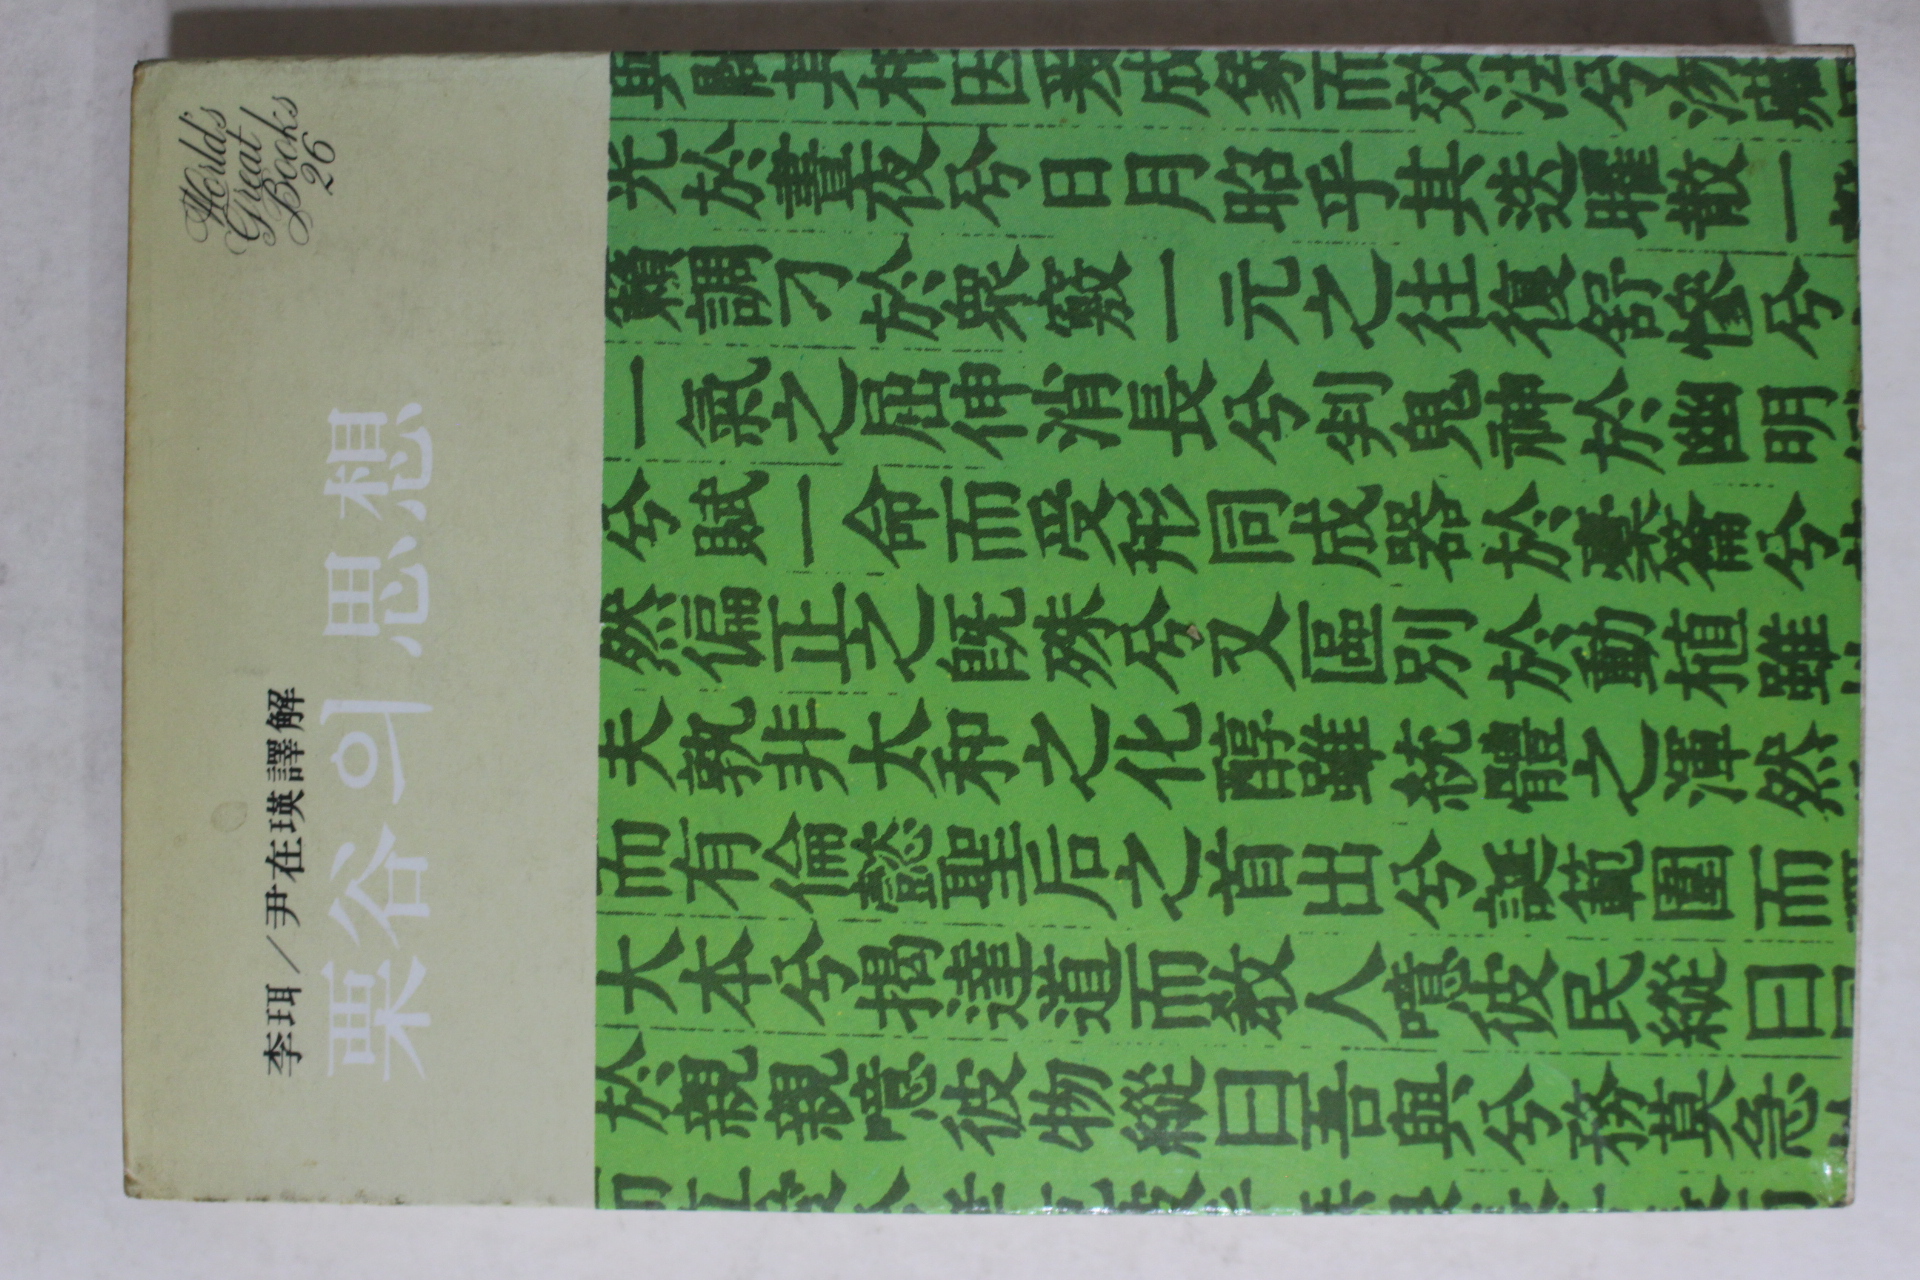 李珥／尹在瑛譯解
栗谷의 思想
World's
Great
Books
26
光於晝夜兮日月昭乎其迭曜散一
籟調刁於衆竅一元之往復舒慘兮
一氣之屈伸消長兮判鬼神於幽明
兮賦一命而受形同成器於槖籥兮
然偏正之旣殊兮又區別於動植雖
夫孰非太和之化醇雖統體之渾然
而有倫懿聖后之首出兮誕範圍而
大本兮揭達道而敎人噫彼民縱曰
於親親噫彼物縱曰吾與兮務莫急